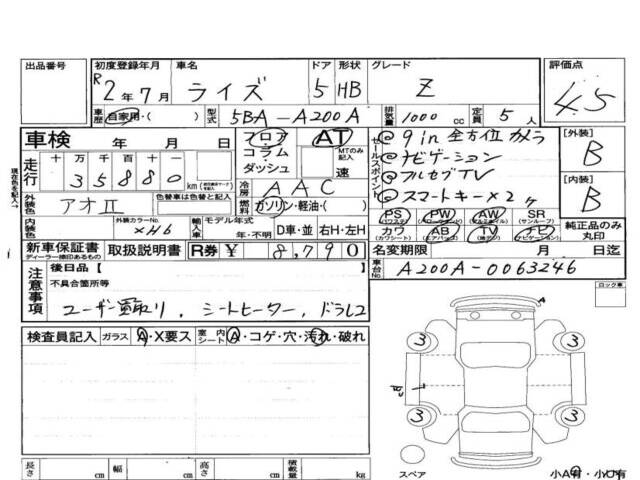 出品番号 初度登録年月 車名 ドア 形状 グレード 評価点
R2年7月 ライズ 5 HB Z 4.5
車歴 自家用・( ) 型式 5BA-A200A 排気量 1000 cc 定員 5 人
車検 年 月 日 フロア AT
コラム MTのみ記入
ダッシュ 速
走行 十 万 千 百 十 一
35880 km
セールスポイント
@ 9in 全方位カメラ
@ ナビゲーション
@ フルセグTV
@ スマートキー×2ヶ
[外装] B
[内装] B
現在色を記入→
外装色 アオⅡ 色替車は色替と記入
冷房 AAC
燃料 ガソリン・軽油・( )
PS (パワステ) PW (パワーウィンドウ) AW (アルミホイル) SR (サンルーフ)
カワ (カワシート) AB (エアバッグ) TV ナビ (ナビゲーション)
純正品のみ丸印
内装色 外装カラーNo. ×H6 輸入車 モデル年式 年・不明 D車・並 右H・左H
新車保証書 ディーラー捺印あるもの 取扱説明書 R券 ¥ 8,790
名変期限 月 日迄
車台No. A200A-0063246
ロック車
注意事項 後日品 [ ]
不具合箇所等
ユーザー買取り、シートヒーター、ドラレコ
検査員記入 ガラス A・X要ス 室内シート A・コゲ・穴・汚れ・破れ
A
3 3
3 3
スペア
小A有・小凹有
長さ cm 幅 cm 高さ cm 積載量 kg